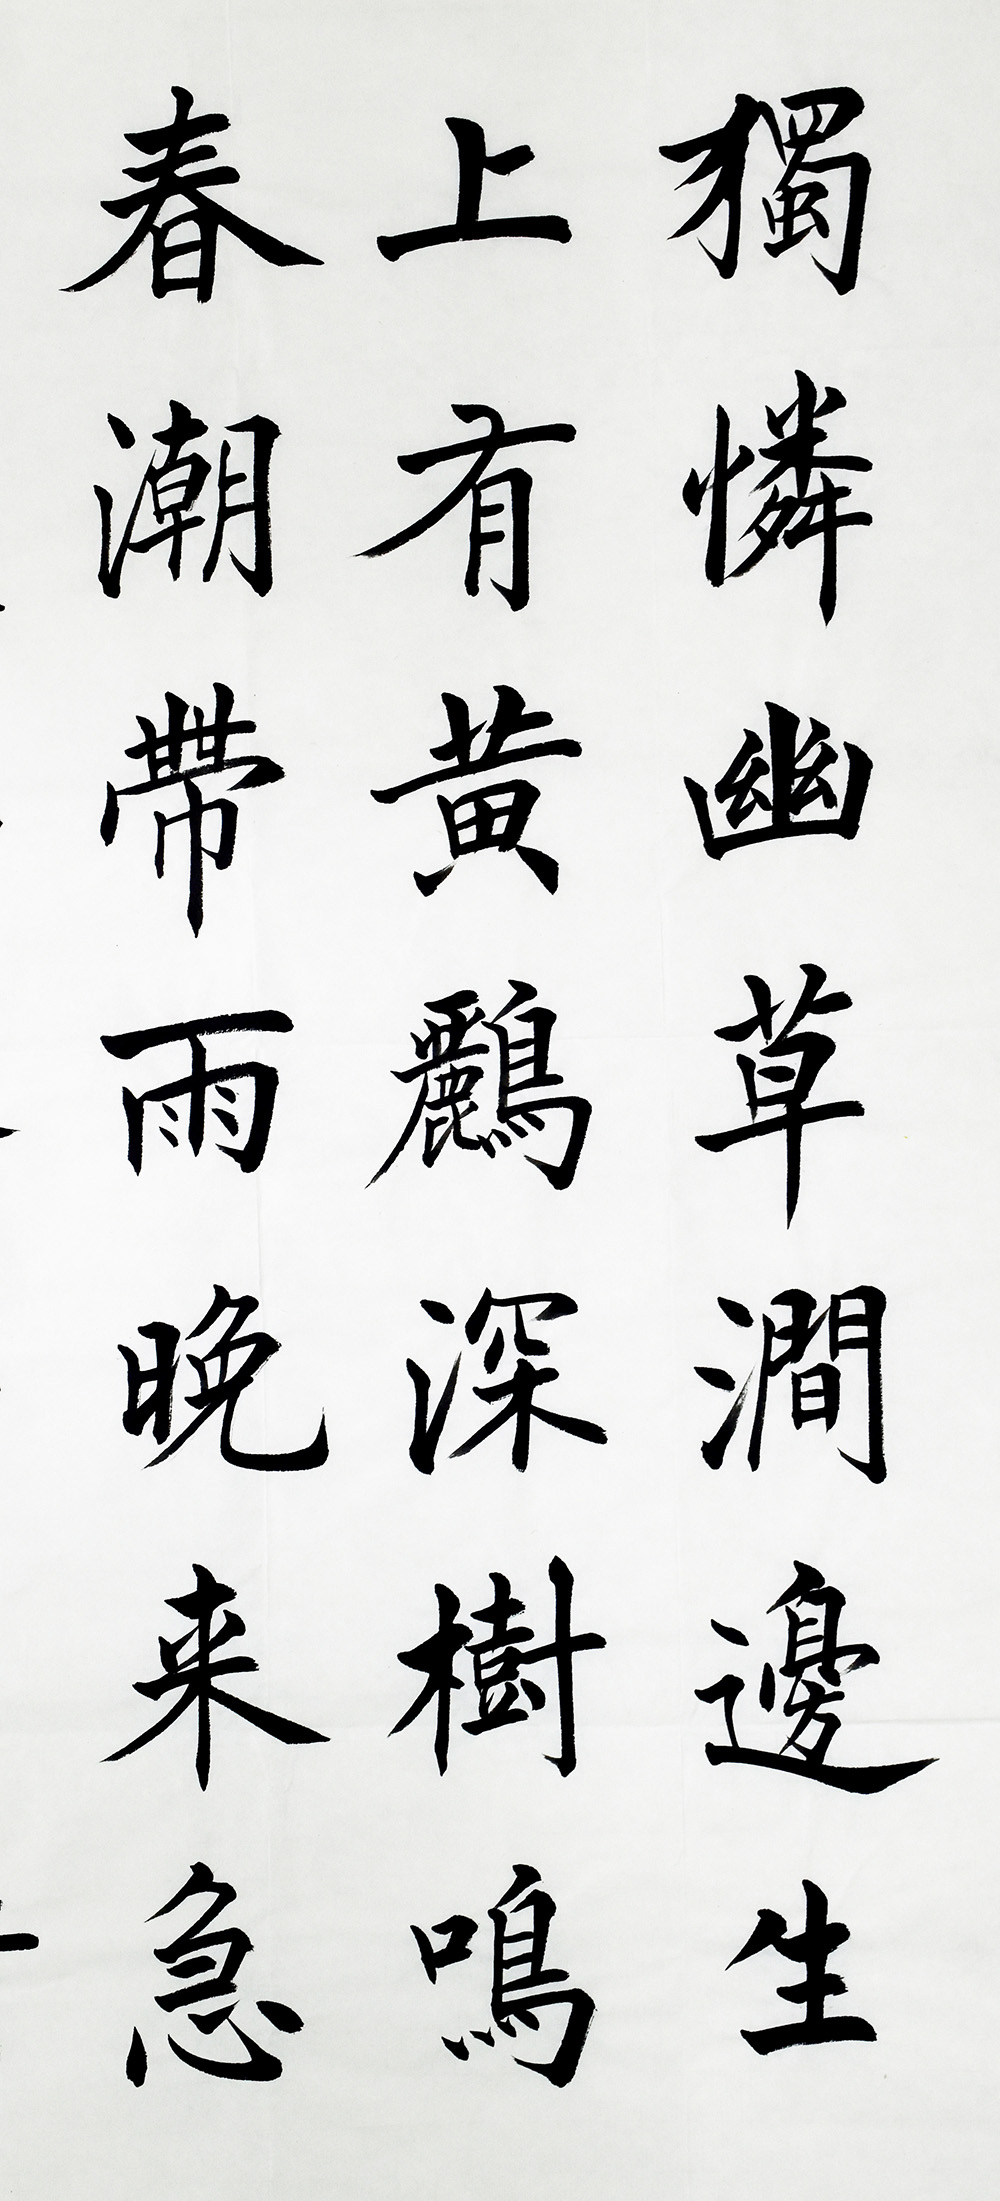 獨憐幽草澗邊生
上有黄鸝深樹鳴
春潮帶雨晚来急